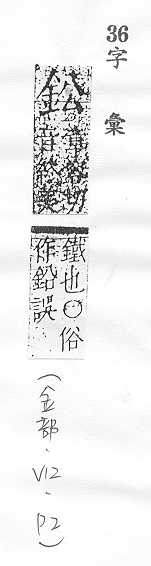 36字彙
鈆
鐵也○俗
作鉛誤
(金部·V12·P2)